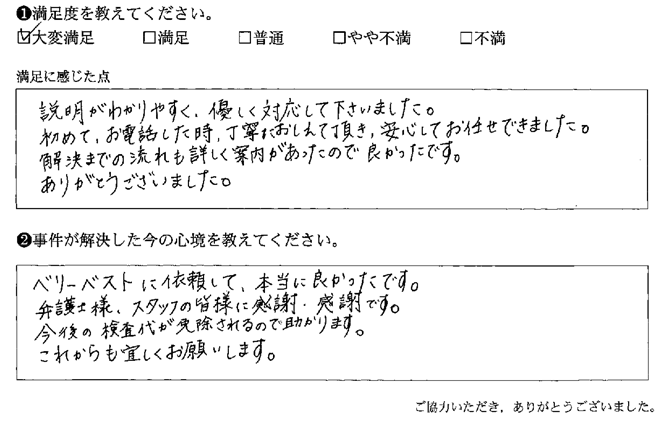 ❶満足度を教えてください。
☑大変満足 □満足 □普通 □やや不満 □不満
満足に感じた点
説明がわかりやすく、優しく対応して下さいました。
初めて、お電話した時、丁寧におしえて頂き、安心してお任せできました。
解決までの流れも詳しく案内があったので良かったです。
ありがとうございました。
❷事件が解決した今の心境を教えてください。
ベリーベストに依頼して、本当に良かったです。
弁護士様、スタッフの皆様に感謝・感謝です。
今後の検査代が免除されるので助かります。
これからも宜しくお願いします。
ご協力いただき，ありがとうございました。